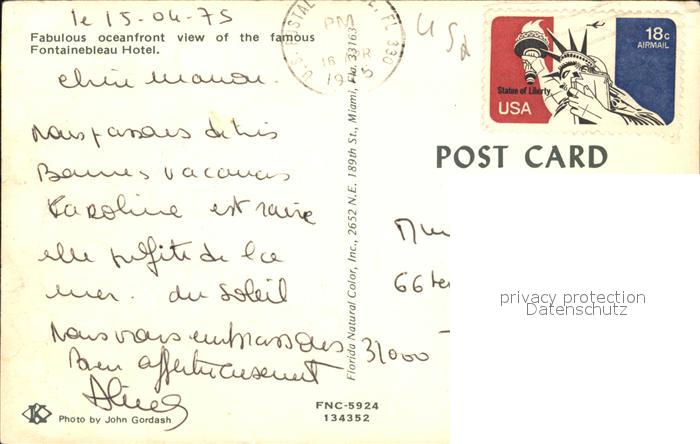 le 15-04-75
Fabulous oceanfront view of the famous
Fontainebleau Hotel.
chère
nous passons de très
Bonnes vacances
Karoline est ravie
elle profite de la
mer. du soleil
Nous vous embrassons
Bien affectueusement
Photo by John Gordash
Florida Natural Color, Inc., 2652 N.E. 189th St., Miami, Fla. 33163
FNC-5924
134352
U.S. POSTAL FL 330
PM
16
POST CARD
Statue of Liberty
USA
18c
AIRMAIL
66
31000
privacy protection
Datenschutz